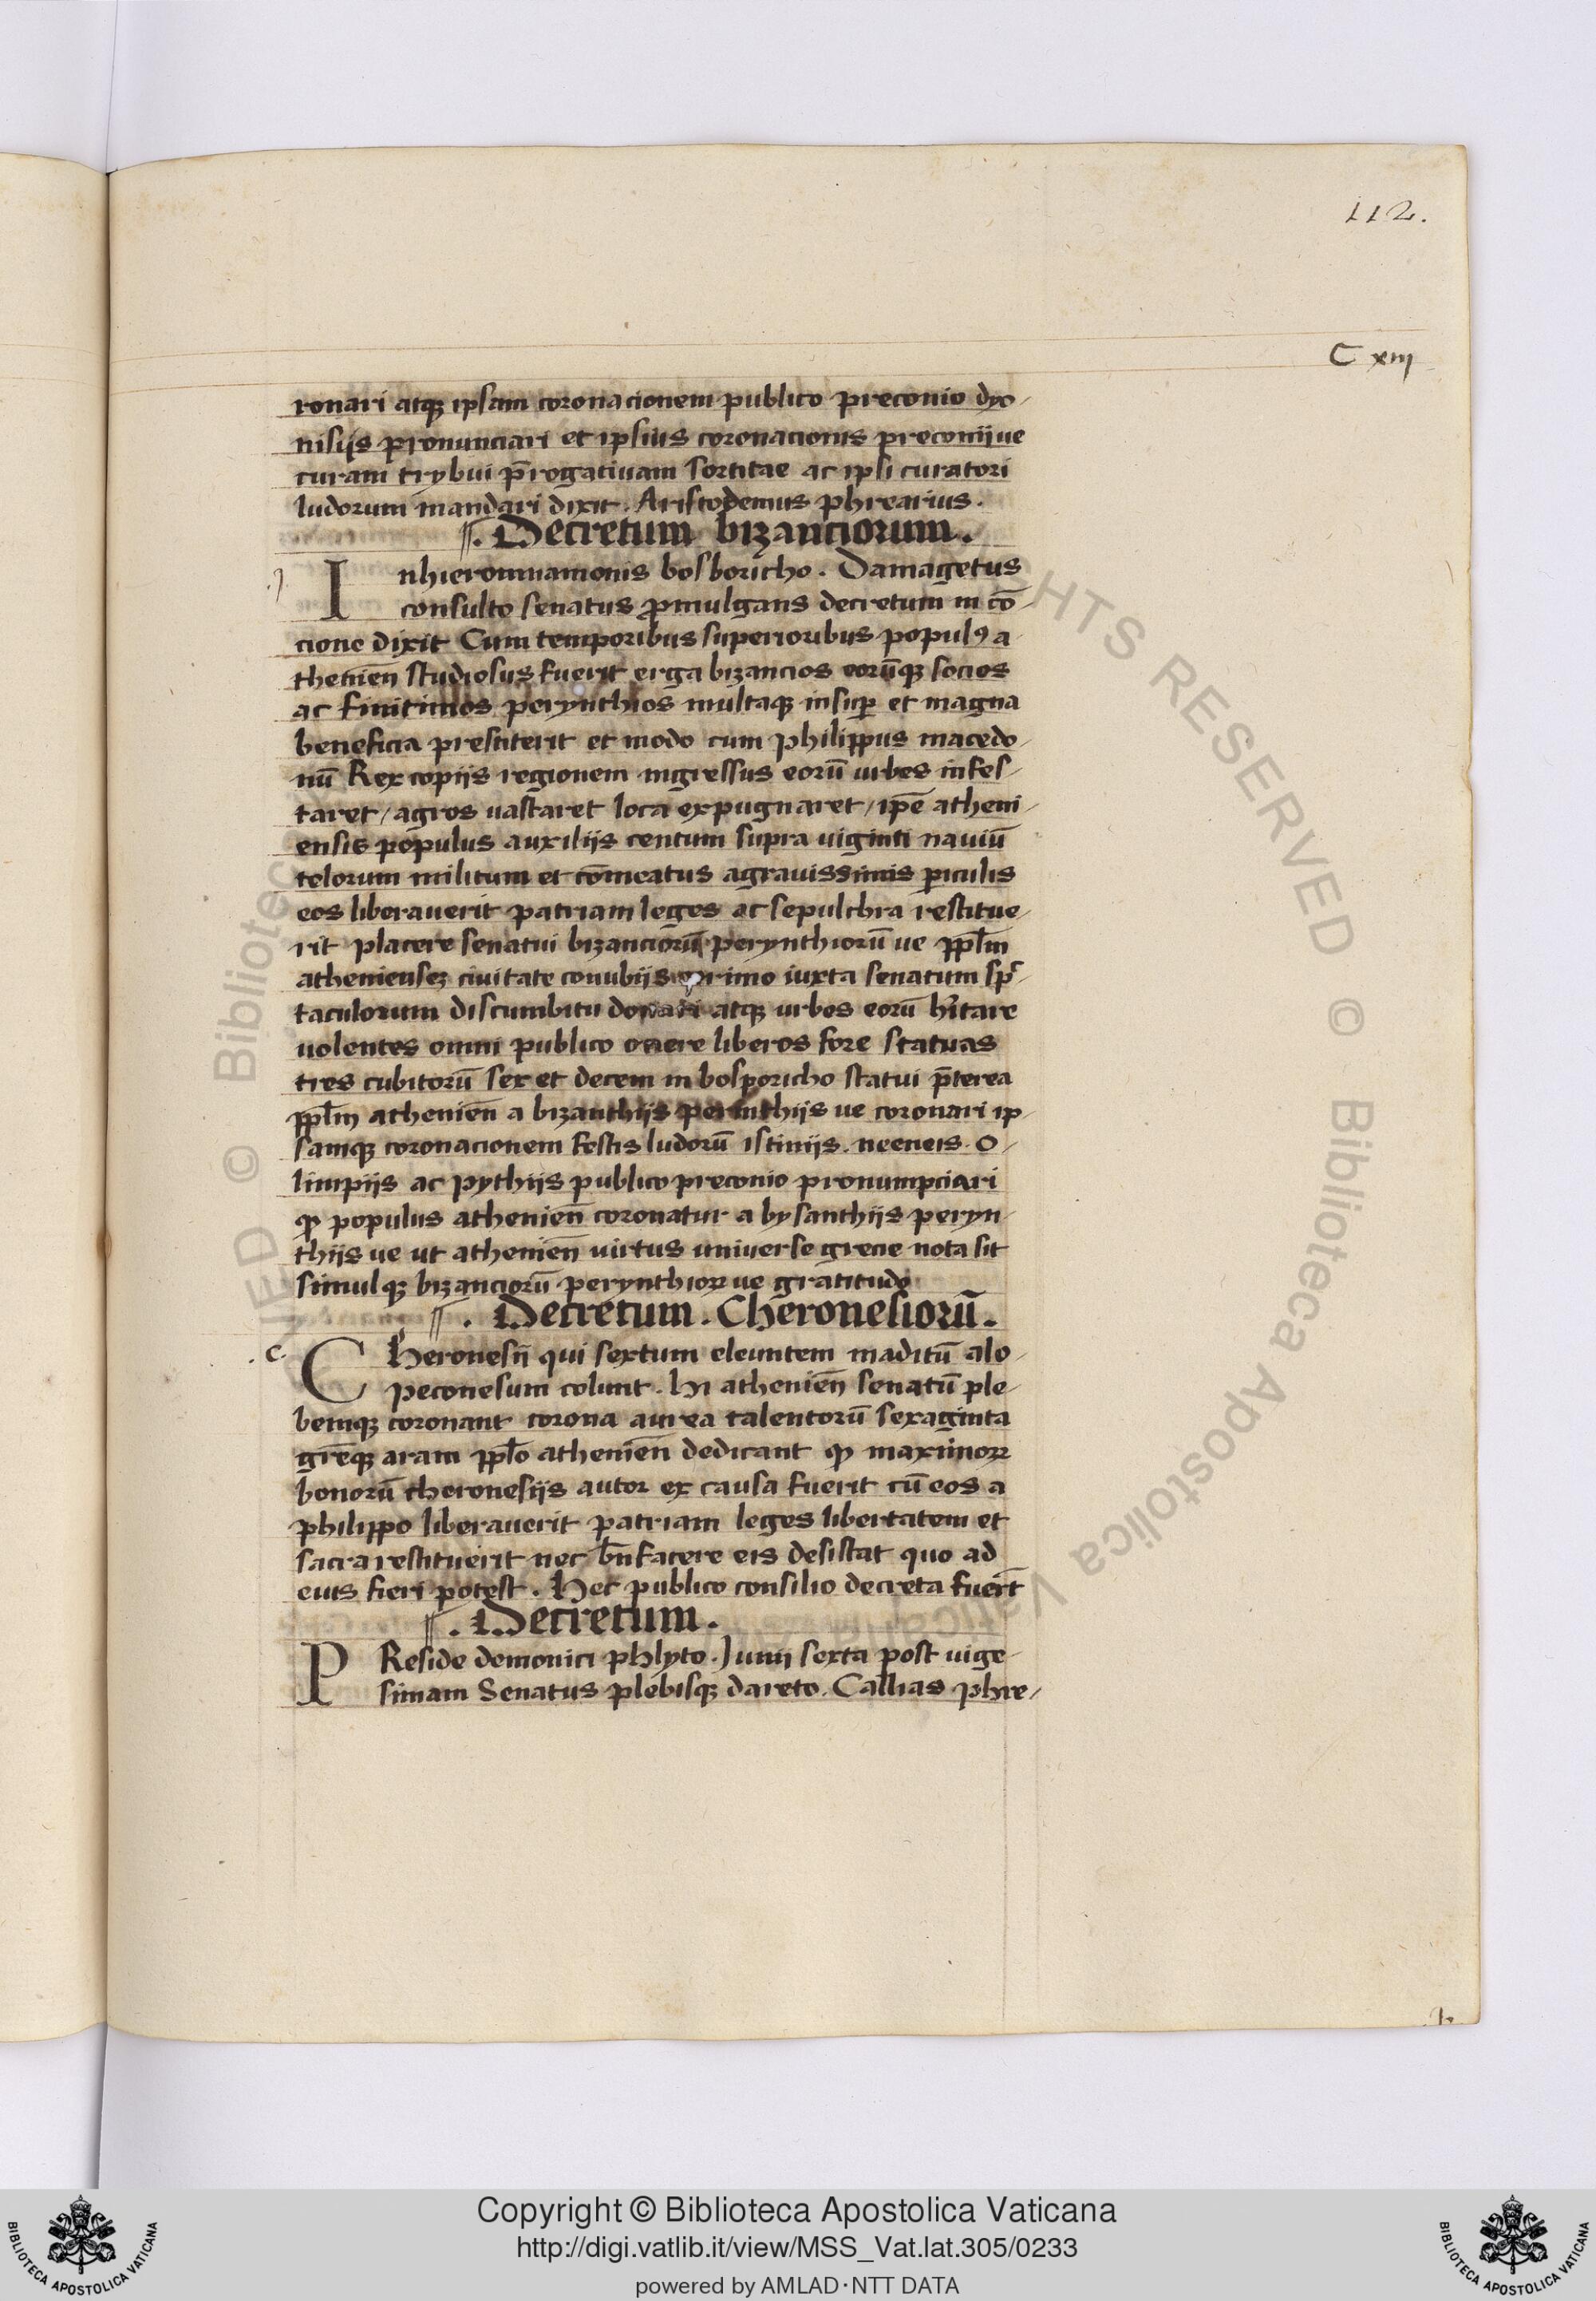 112.
C xiij
ronari atqꝫ ipsam coronacionem publico preconio dyo-
nisijs pronunciari et ipsius coronacionis preconijue
curam trybui p̄rogatiuam sortitae ac ipsi curatori
ludorum mandari dixit. Aristodemus phrearius.
Decretum bizanciorum.
I nhieromnamonis bosboricho. Damagetus
consulto senatus ꝓmulgans decretum in cō-
cione dixit Cum temporibus superioribus populꝰ a-
thenien̄ studiosus fuerit erga bizancios eorūqꝫ socios
ac finitimos perynthios multaqꝫ insuꝑ et magna
beneficia prestiterit et modo cum philippus macedo-
nū Rex copijs regionem ingressus eorū urbes infes-
taret / agros uastaret loca expugnaret / ip̄e atheni-
ensis populus auxilijs centum supra uiginti nauiū
telorum militum et cōmeatus agrauissimis ꝑiculis
eos liberauerit patriam leges ac sepulchra restitue-
rit placere senatui bizanciorū perynthiorū ue pp̄lm
athenienseꝫ ciuitate conubijs primo iuxta senatum sp̄-
taculorum discumbitu donari atqꝫ urbes eorū h̄itare
uolentes omni publico onere liberos fore statuas
tres cubitorū sex et decem in bosporicho statui p̄terea
pp̄lm athenien̄ a bizanthijs perinthijs ue coronari ip-
samqꝫ coronacionem festis ludorū istimijs. neeneis. O-
limpijs ac pythijs publico preconio pronumpciari
ꝙ populus athenien̄ coronatur a bysanthijs peryn-
thijs ue ut athenien̄ uirtus uniuerse grecie nota sit
simulqꝫ bizanciorū perynthioꝝ ue gratitudo
Decretum. Cheronesiorū.
.c. C heronesij qui sextum eleuntem maditū alo-
peconesum colunt. Hi athenien̄ senatū ple-
bemqꝫ coronant corona aurea talentorū sexaginta
grēqꝫ aram pp̄lo athenien̄ dedicant ꝙ maximoꝝ
bonorū cheronesijs autor ex causa fuerit cū eos a
philippo liberauerit patriam leges libertatem et
sacra restituerit nec bn̄facere eis desistat quo ad
euis fieri potest. Hec publico consilio decreta fuerūt
Decretum.
P Reside demonici phlyto. Junij sexta post uige-
simam Senatus plebisqꝫ dareto. Callias phre-
Copyright © Biblioteca Apostolica Vaticana
http://digi.vatlib.it/view/MSS_Vat.lat.305/0233
powered by AMLAD·NTT DATA